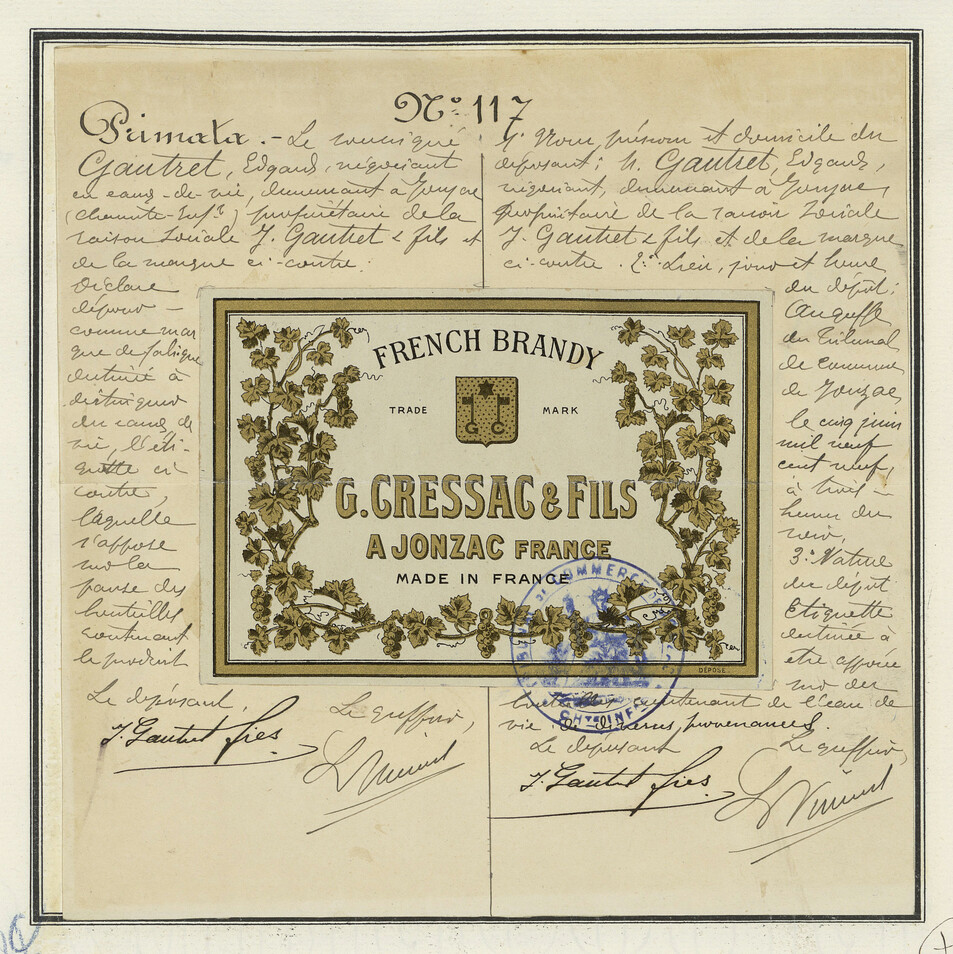 No 117
Primata. - Le soussigné
Gautret, Edgard, négociant
en eaux-de-vie, demeurant à Jonzac
(Charente-Infre) propriétaire de la
raison sociale J. Gautret & fils et
de la marque ci-contre:
Déclare
déposer
comme mar
que de fabrique
destinée à
distinguer
des eaux de
vie, l'éti-
quette ci
contre,
laquelle
s'appose
sur la
panse des
bouteilles
contenant
le produit
Le déposant,
Le greffier,
J. Gautret fres
1. Nom, prénom et domicile du
déposant; M. Gautret, Edgard,
négociant, demeurant à Jonzac,
propriétaire de la raison sociale
J. Gautret & fils et de la marque
ci-contre. 2o Lieu, jour et heure
du dépôt:
Au greffe
du Tribunal
de commerce
de Jonzac
le cinq juin
mil neuf
cent neuf,
à trois
heures du
soir,
3o Nature
du dépôt
Etiquette
destinée à
être apposée
sur des
contenant de l'eau de
vie de diverses provenances.
Le déposant
Le greffier,
J. Gautret fres
FRENCH BRANDY
TRADE MARK
G C
G. CRESSAC & FILS
A JONZAC FRANCE
MADE IN FRANCE
DÉPOSÉ
COMMERCE
CHTE INFRE